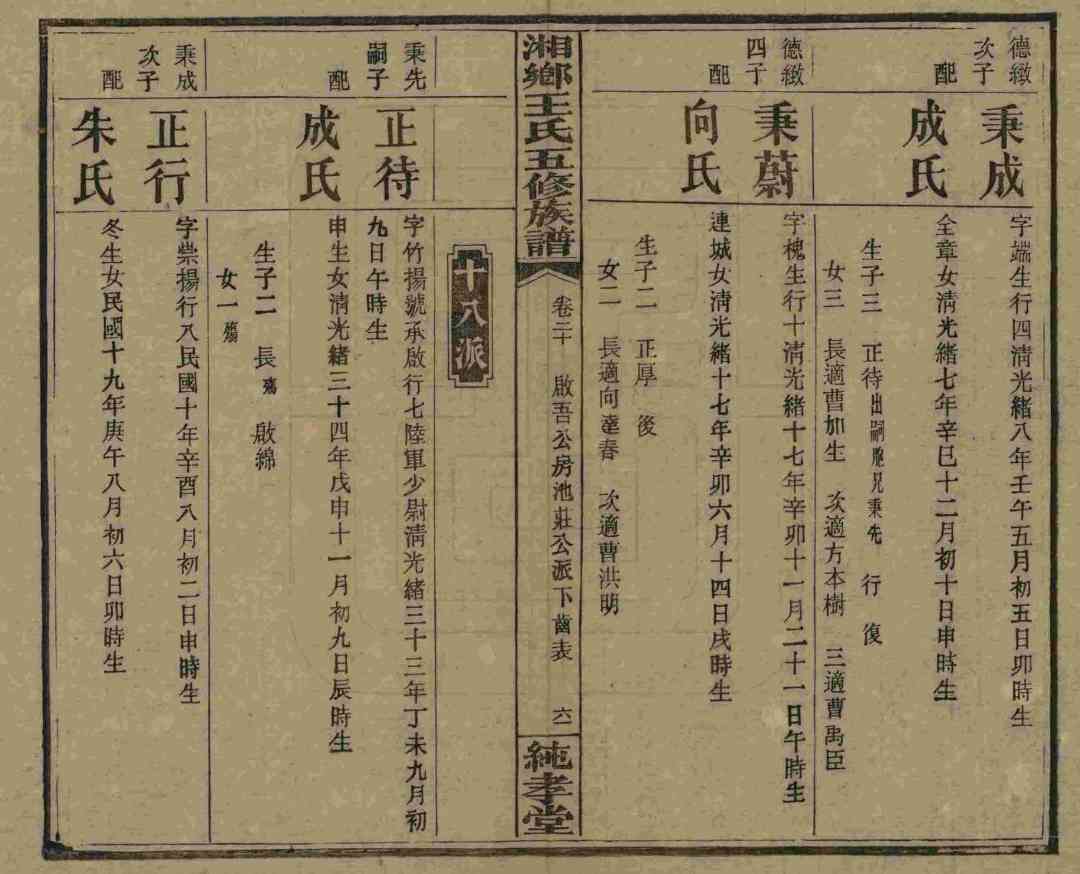 德緻
次子
秉成
字端生行四淸光緒八年壬午五月初五日卯時生
配
成氏
全章女淸光緒七年辛巳十二月初十日申時生
生子三　正待出嗣胞兄秉先　行　復
女三　長適曹如生　次適方本樹　三適曹禹臣
德緻
四子
秉蔚
字槐生行十淸光緒十七年辛卯十一月二十一日午時生
配
向氏
連城女淸光緒十七年辛卯六月十四日戌時生
生子二　正厚　後
女二　長適向達春　次適曹洪明
湘鄉王氏五修族譜
卷二十　啟吾公房池莊公派下齒表　六一
純孝堂
十八派
秉先
嗣子
正待
字竹揚號承啟行七陸軍少尉淸光緒三十三年丁未九月初
九日午時生
配
成氏
申生女淸光緒三十四年戊申十一月初九日辰時生
生子二　長殤　啟綿
女一殤
秉成
次子
正行
字崇揚行八民國十年辛酉八月初二日申時生
配
朱氏
冬生女民國十九年庚午八月初六日卯時生